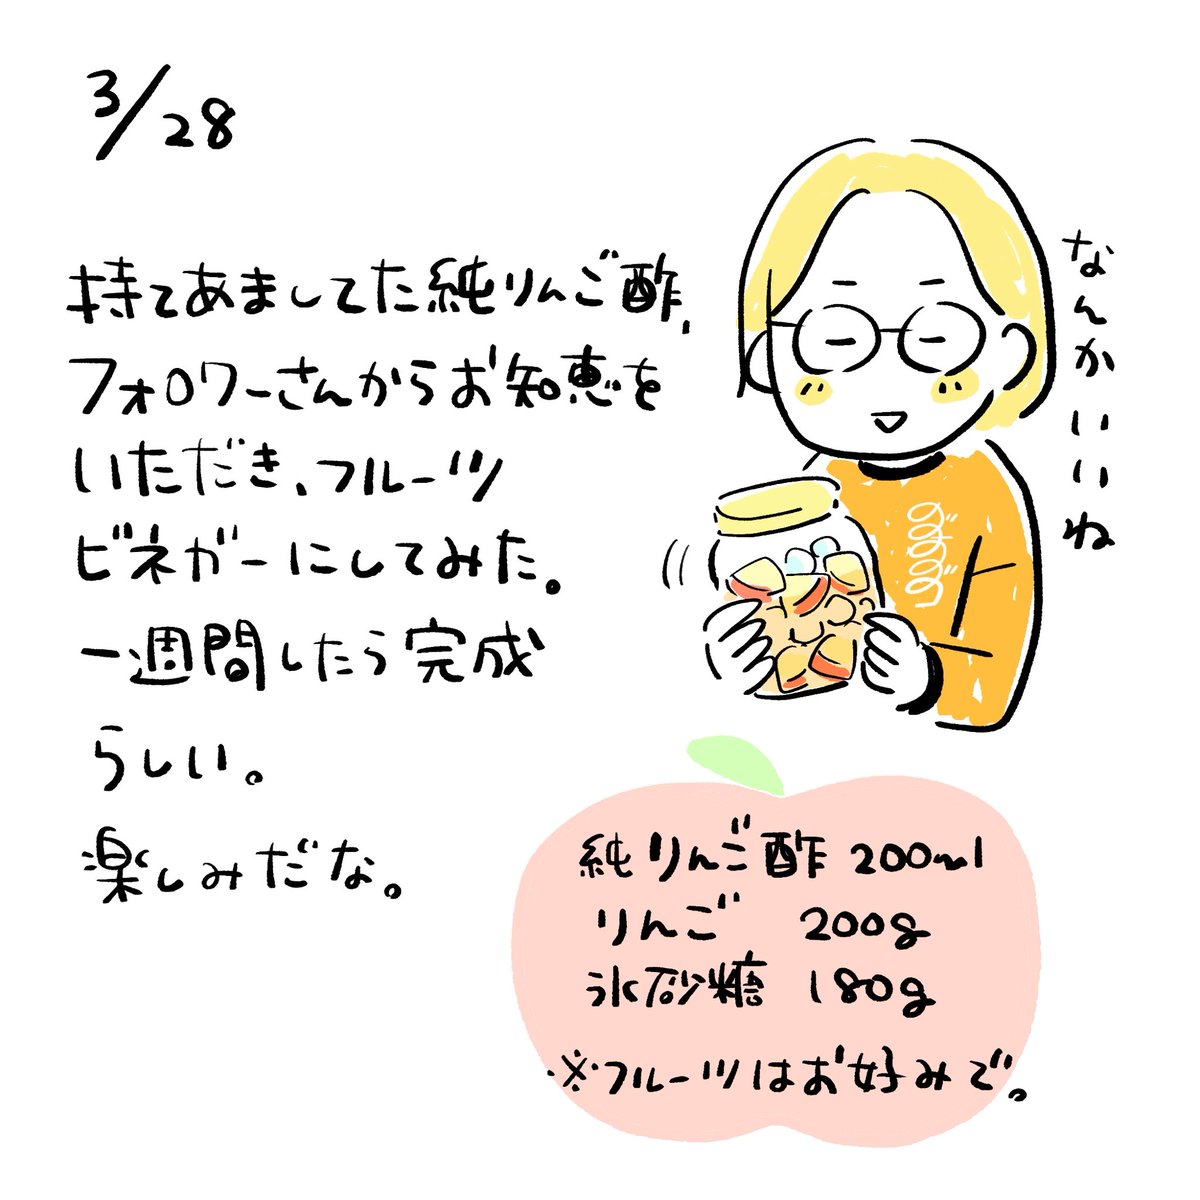 3/28
持てあましてた純りんご酢、
フォロワーさんからお知恵を
いただき、フルーツ
ビネガーにしてみた。
一週間したら完成
らしい。
楽しみだな。
なんかいいね
純りんご酢 200ml
りんご 200g
氷砂糖 180g
※フルーツはお好みで。